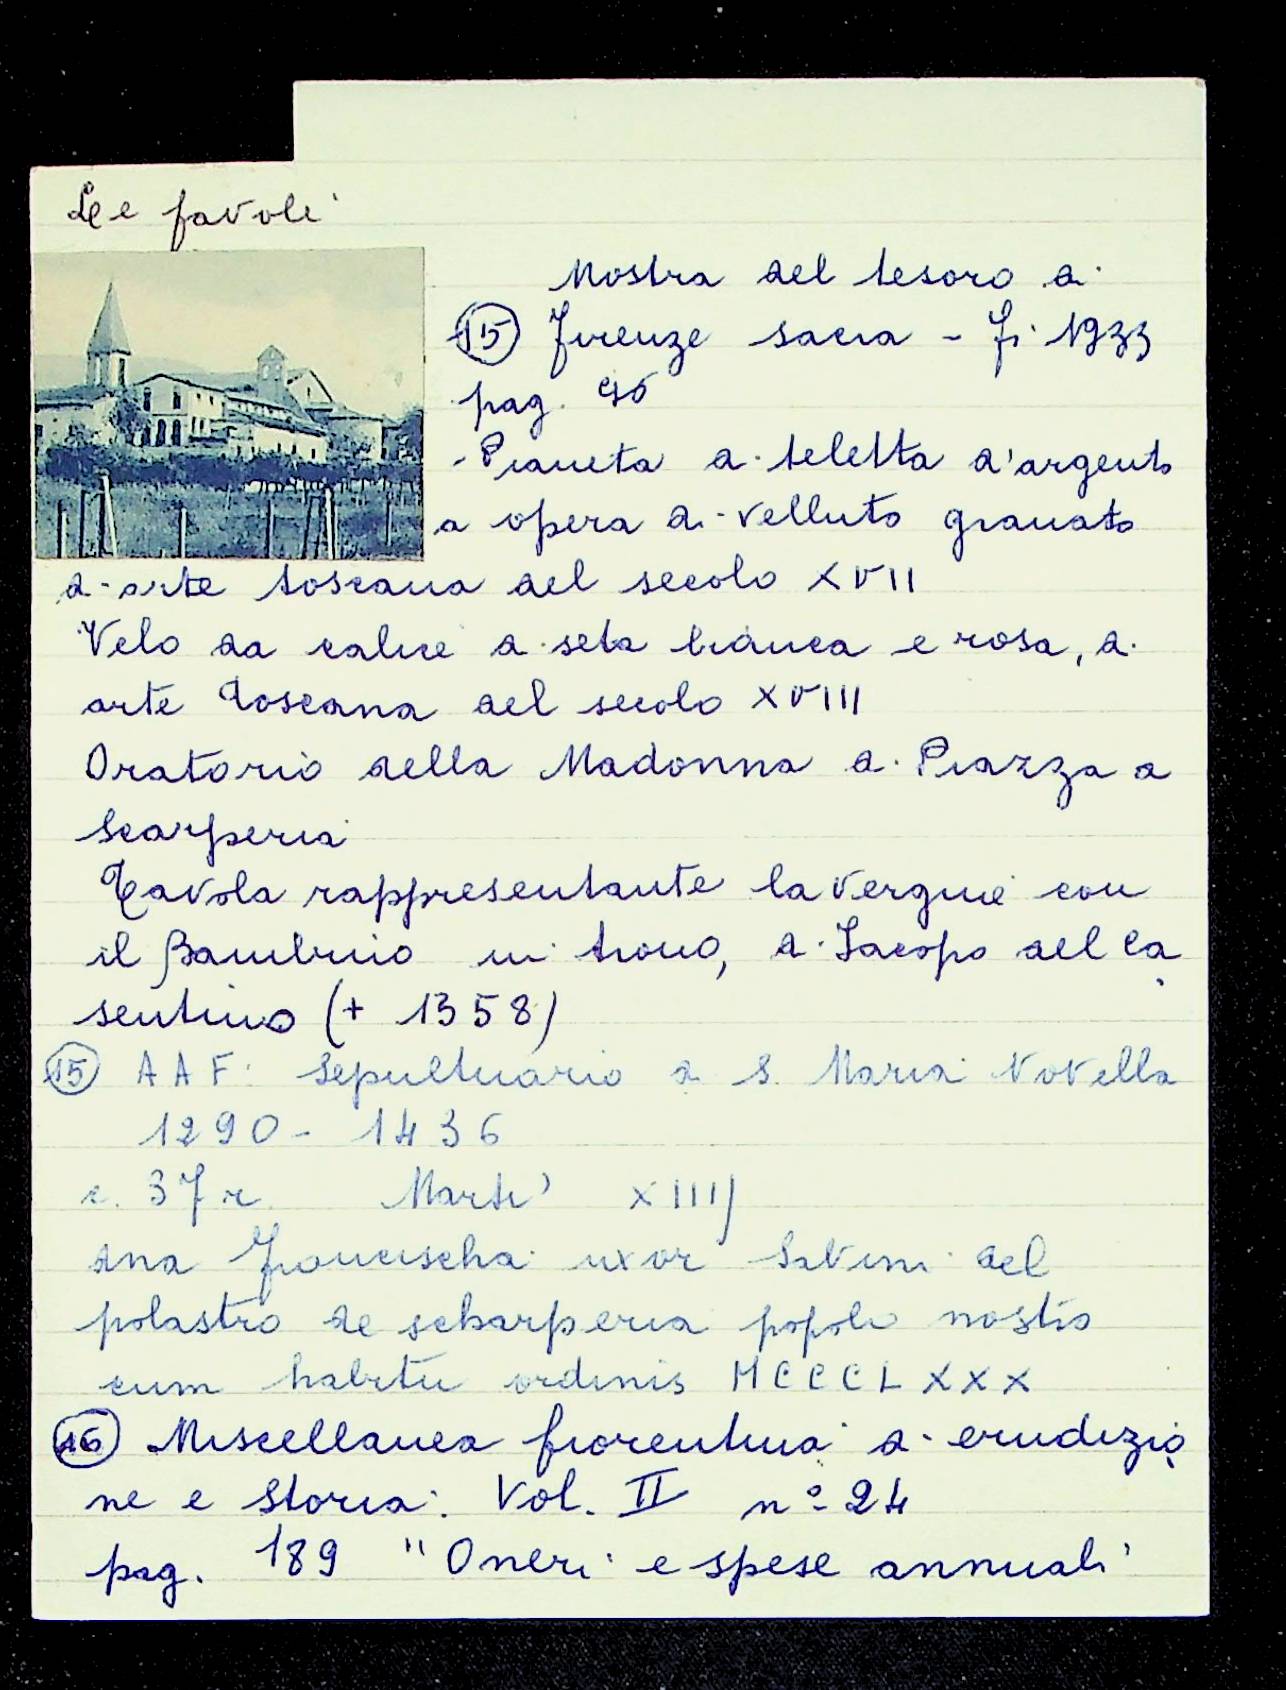 Le favole
Mostra del tesoro di
15 Firenze sacra - Fi 1933
pag. 96
- Pianeta di teletta d'argento
a opera di velluto granato
di arte toscana del secolo XVII
Velo da calice di seta bianca e rosa, di
arte Toscana del secolo XVIII
Oratorio della Madonna di Piazza a
Scarperia
Tavola rappresentante la Vergine con
il Bambino in trono, di Jacopo del Ca
sentino (+ 1358)
15 AAF: Sepultuario di S. Maria Novella
1290 - 1436
c. 37 r. Martii XIIIJ
dna Francischa uxor Salvini del
polastro de scharperia popoli nostro
cum habitu ordinis MCCCLXXX
16 Miscellanea fiorentina di erudizio
ne e storia. Vol. II n° 24
pag. 189 "Oneri e spese annuali